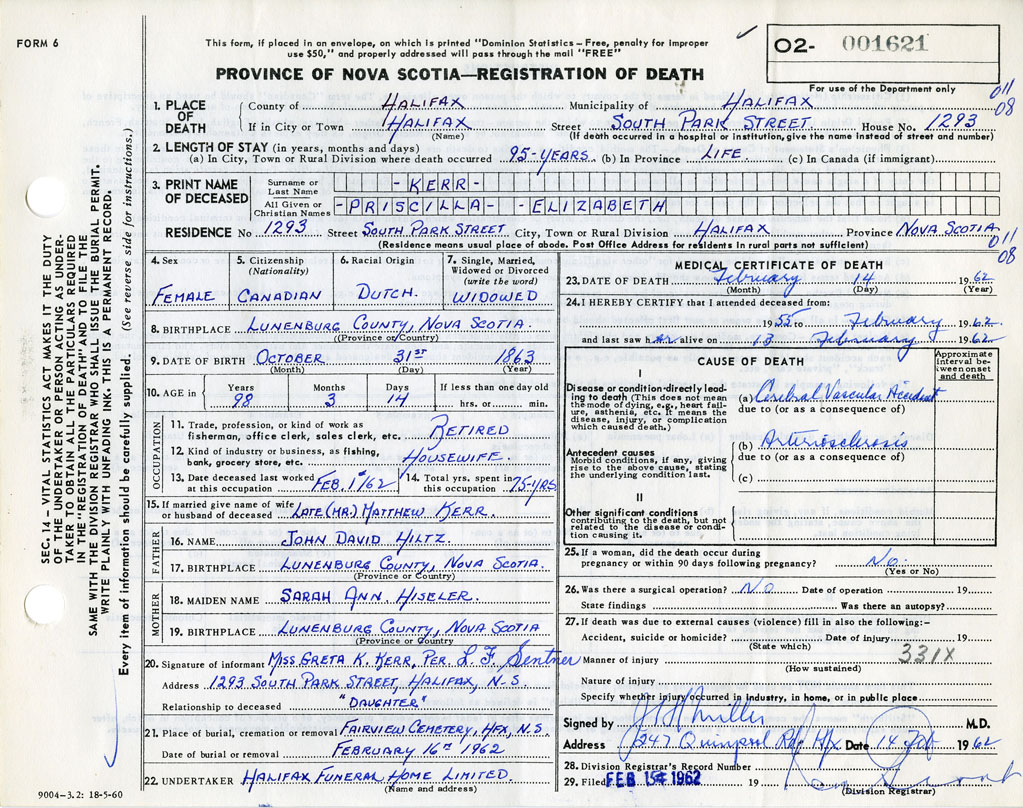 FORM 6
This form, if placed in an envelope, on which is printed "Dominion Statistics – Free, penalty for improper
use $50," and properly addressed will pass through the mail "FREE"
PROVINCE OF NOVA SCOTIA—REGISTRATION OF DEATH
02- 001621
For use of the Department only
011
08
1. PLACE OF DEATH
County of HALIFAX Municipality of HALIFAX
If in City or Town HALIFAX Street SOUTH PARK STREET. House No. 1293
(Name) (If death occurred in a hospital or institution, give the name instead of street and number)
2. LENGTH OF STAY (in years, months and days)
(a) In City, Town or Rural Division where death occurred 95-YEARS. (b) In Province LIFE. (c) In Canada (if immigrant)
3. PRINT NAME OF DECEASED
Surname or Last Name -KERR-
All Given or Christian Names -PRISCILLA- -ELIZABETH
RESIDENCE No. 1293 Street SOUTH PARK STREET. City, Town or Rural Division HALIFAX Province NOVA SCOTIA
(Residence means usual place of abode. Post Office Address for residents in rural parts not sufficient)
011
08
4. Sex FEMALE
5. Citizenship (Nationality) CANADIAN
6. Racial Origin DUTCH.
7. Single, Married, Widowed or Divorced (write the word) WIDOWED
8. BIRTHPLACE LUNENBURG COUNTY, NOVA SCOTIA.
(Province or Country)
9. DATE OF BIRTH OCTOBER 31ST 1863
(Month) (Day) (Year)
10. AGE in Years 98 Months 3 Days 14 If less than one day old hrs. or min.
OCCUPATION
11. Trade, profession, or kind of work as
fisherman, office clerk, sales clerk, etc. RETIRED
12. Kind of industry or business, as fishing,
bank, grocery store, etc. HOUSEWIFE.
13. Date deceased last worked
at this occupation FEB. 1/62
14. Total yrs. spent in
this occupation 75-YRS
15. If married give name of wife
or husband of deceased LATE (MR.) MATTHEW KERR.
FATHER
16. NAME JOHN DAVID HILTZ.
17. BIRTHPLACE LUNENBURG COUNTY, NOVA SCOTIA.
(Province or Country)
MOTHER
18. MAIDEN NAME SARAH ANN. HISELER.
19. BIRTHPLACE LUNENBURG COUNTY, NOVA SCOTIA
(Province or Country
20. Signature of informant MISS GRETA K. KERR, PER. L. F. Sentner
Address 1293 SOUTH PARK STREET, HALIFAX, N.S.
Relationship to deceased "DAUGHTER"
21. Place of burial, cremation or removal FAIRVIEW CEMETERY, HFX, N.S.
Date of burial or removal FEBRUARY 16TH 1962
22. UNDERTAKER HALIFAX FUNERAL HOME LIMITED.
(Name and address)
MEDICAL CERTIFICATE OF DEATH
23. DATE OF DEATH February 14 1962
(Month) (Day) (Year)
24. I HEREBY CERTIFY that I attended deceased from:
1955 to February 1962
and last saw her alive on 13 February 1962
CAUSE OF DEATH
Approximate interval between onset and death
I
Disease or condition directly leading to death (This does not mean the mode of dying, e.g., heart failure, asthenia, etc. It means the disease, injury, or complication which caused death.)
(a) Cerebral Vascular Accident
due to (or as a consequence of)
Antecedent causes
Morbid conditions, if any, giving rise to the above cause, stating the underlying condition last.
(b) Arteriosclerosis
due to (or as a consequence of)
(c)
II
Other significant conditions
contributing to the death, but not related to the disease or condition causing it.
25. If a woman, did the death occur during
pregnancy or within 90 days following pregnancy? No.
(Yes or No)
26. Was there a surgical operation? NO Date of operation 19
State findings Was there an autopsy?
27. If death was due to external causes (violence) fill in also the following:-
Accident, suicide or homicide? Date of injury 19
(State which)
331X
Manner of injury
(How sustained)
Nature of injury
Specify whether injury occurred in industry, in home, or in public place
Signed by Miller M.D.
Address Quinpool Rd. Hfx Date 14 Feb 1962
28. Division Registrar's Record Number
29. Filed FEB 15 1962 19
(Division Registrar)
SEC. 14 - VITAL STATISTICS ACT MAKES IT THE DUTY
OF THE UNDERTAKER OR PERSON ACTING AS UNDER-
TAKER TO OBTAIN ALL THE PARTICULARS REQUIRED
IN THE "REGISTRATION OF DEATH" AND TO FILE THE
SAME WITH THE DIVISION REGISTRAR WHO SHALL ISSUE THE BURIAL PERMIT.
WRITE PLAINLY WITH UNFADING INK. THIS IS A PERMANENT RECORD.
Every item of information should be carefully supplied. (See reverse side for instructions.)
9004-3.2: 18-5-60